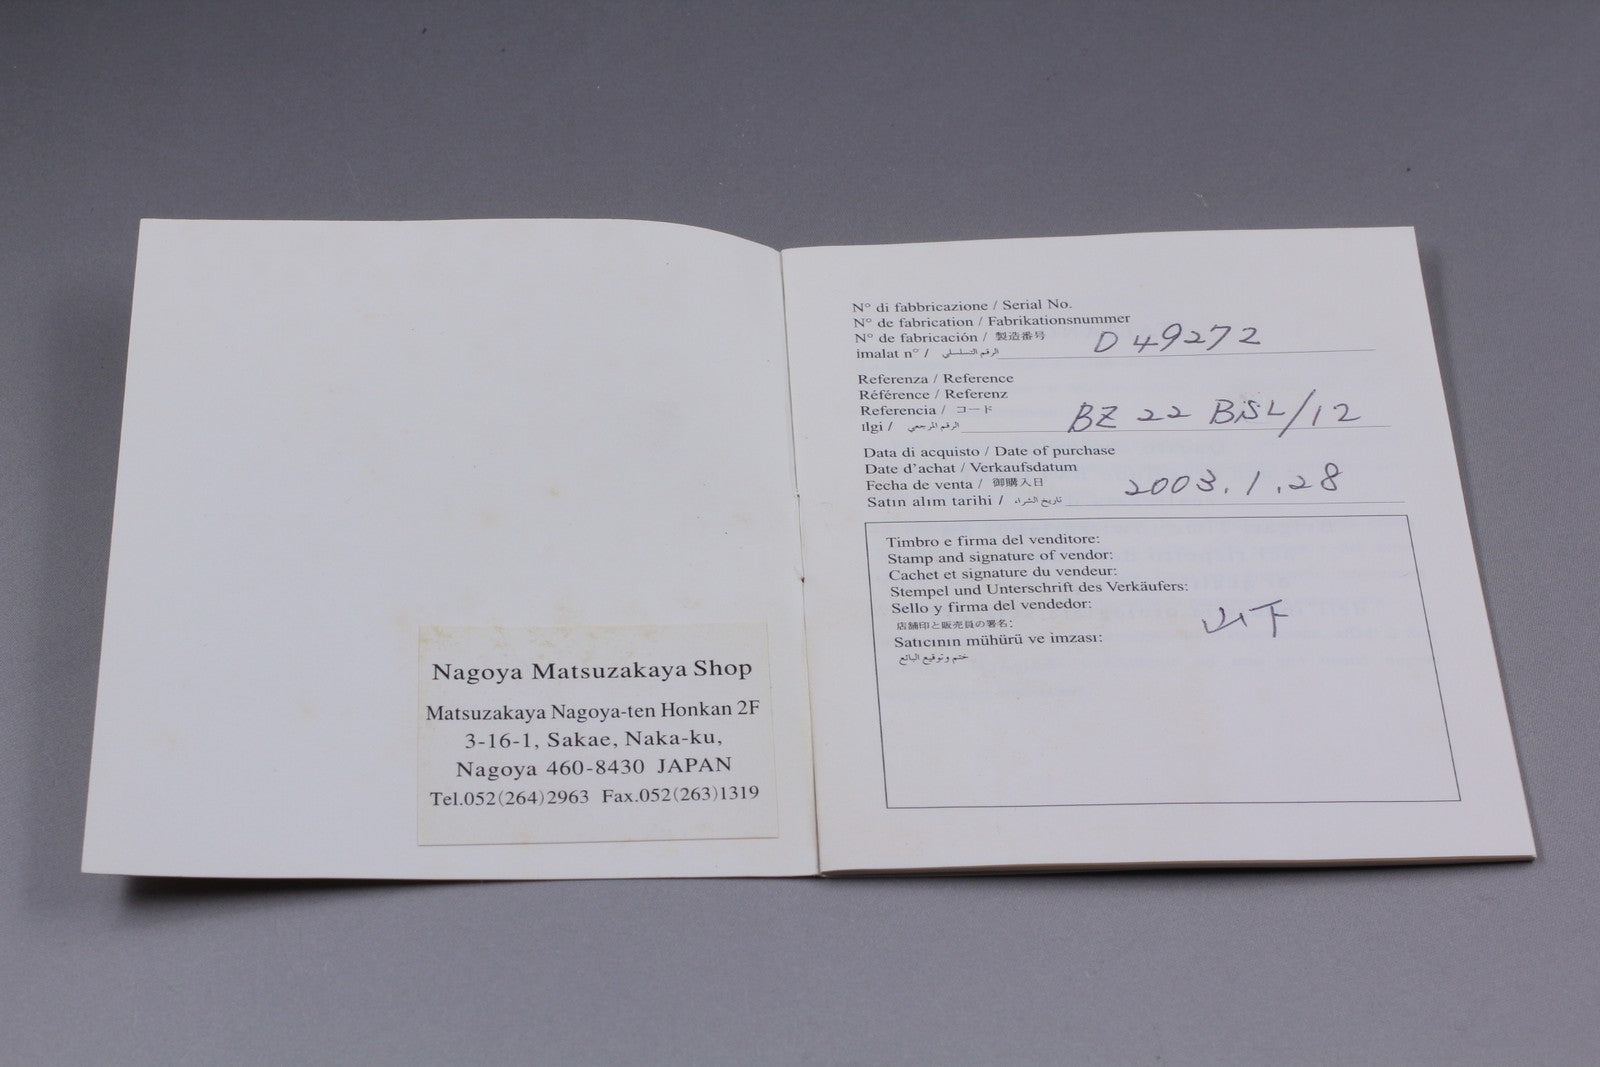 Nagoya Matsuzakaya Shop
Matsuzakaya Nagoya-ten Honkan 2F
3-16-1, Sakae, Naka-ku,
Nagoya 460-8430 JAPAN
Tel.052(264)2963 Fax.052(263)1319
N° di fabbricazione / Serial No.
N° de fabrication / Fabrikationsnummer
N° de fabricación / 製造番号
imalat n° / الرقم التسلسلي D 49272
Referenza / Reference
Référence / Referenz
Referencia / コード
ılgi / الرقم المرجعي BZ 22 BSL/12
Data di acquisto / Date of purchase
Date d'achat / Verkaufsdatum
Fecha de venta / 御購入日
Satın alım tarihi / تاريخ الشراء 2003.1.28
Timbro e firma del venditore:
Stamp and signature of vendor:
Cachet et signature du vendeur:
Stempel und Unterschrift des Verkäufers:
Sello y firma del vendedor:
店舗印と販売員の署名:
Satıcının mühürü ve imzası:
ختم وتوقيع البائع
山下